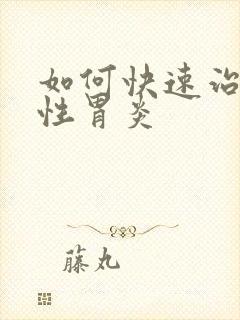 如何快速治
性胃炎
藤丸